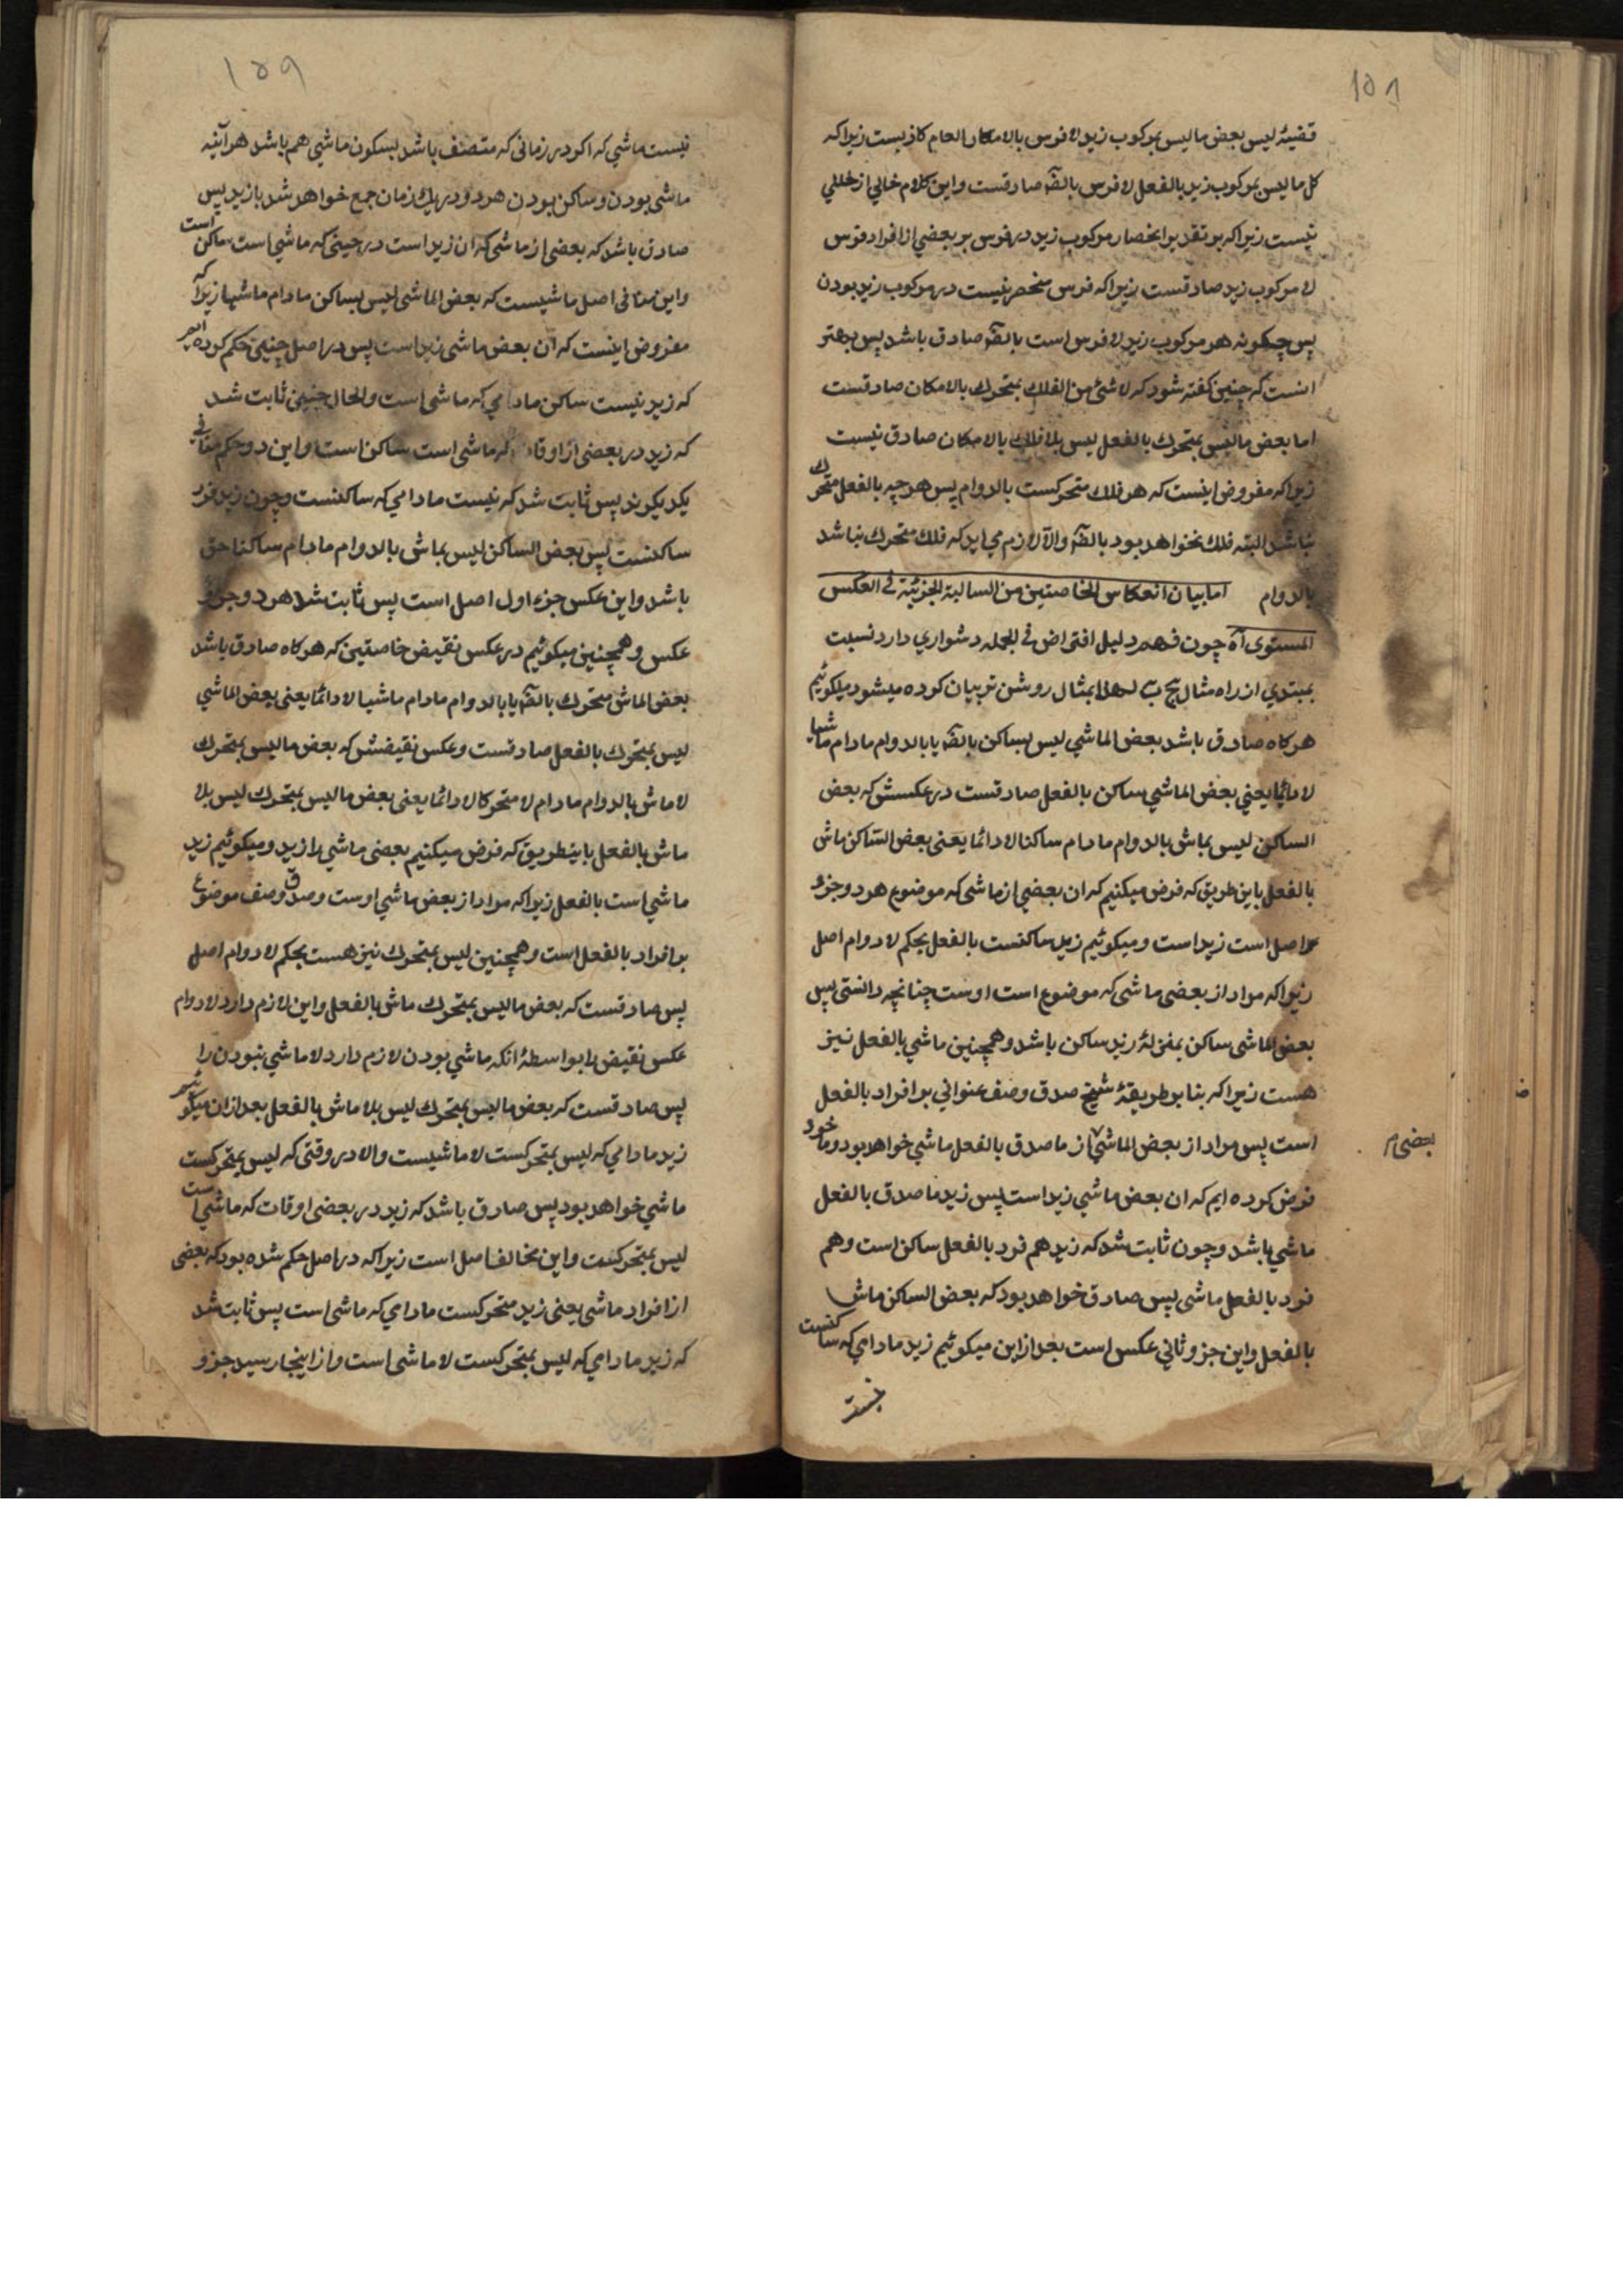 ۱۵۸
قضیهٔ لیس بعض ما لیس بمرکوب زید لا فرس بالامکان العام کاذبست زیرا که
کل ما لیس بمرکوب زید بالفعل لا فرس بالضّه صادقست و این کلام خالی از خللی
نیست زیرا که بر تقدیر انحصار مرکوب زید در فرس بر بعضی از افراد فرس
لا مرکوب زید صادقست زیرا که فرس منحصر نیست در مرکوب زید بودن
پس چکونه هر مرکوب زید لا فرس است بالضّه صادق باشد پس بهتر
انست که چنین کفته شود که لا شئ من الفلک بمتحرک بالامکان صادقست
اما بعض ما لیس بمتحرک بالفعل لیس بلا فلک بالامکان صادق نیست
زیرا که مفروض اینست که هر فلک متحرکست بالدوام پس هر چیه بالفعل متحرک
نباشد البته فلک نخواهد بود بالضّه والا لازم می اید که فلک متحرک نباشد
بالدوام اما بیان انعکاس الخاصتین من السالبة الجزئیة فی العکس
المستوی آه چون فهم دلیل افتراض فی الجمله دشواری دارد نسبت
بمبتدی از راه مثال ج ب لهذا بمثال روشن تر بیان کرده میشود میکوئیم
هرکاه صادق باشد بعض الماشی لیس بساکن بالضّه یا بالدوام مادام ماشیا
لا دائما یعنی بعض الماشی ساکن بالفعل صادقست در عکسش که بعض
الساکن لیس بماش بالدوام مادام ساکنا لا دائما یعنی بعض الساکن ماش
بالفعل باین طریق که فرض میکنیم که ان بعضی از ماشی که موضوع هر دو جزء
اصل است زید است و میکوئیم زید ساکنست بالفعل بحکم لا دوام اصل
زیرا که مراد از بعضی ماشی که موضوع است اوست چنانچه دانستی پس
بعض الماشی ساکن بمنزلهٔ زید ساکن باشد و همچنین ماشی بالفعل نیز
هست زیرا که بنا بر طریقهٔ شیخ صدق وصف عنوانی بر افراد بالفعل
است پس مراد از بعض الماشی از ما صدق بالفعل ماشی خواهد بود و ما خود
بعضی م
فرض کرده ایم که ان بعض ماشی زید است پس زید ما صدق بالفعل
ماشی باشد و چون ثابت شد که زید هم فرد بالفعل ساکن است و هم
فرد بالفعل ماشی پس صادق خواهد بود که بعض الساکن ماش
بالفعل و این جزو ثانی عکس است بعد از این میکوئیم زید مادامی که ساکنست
نیست
۱۵۹
نیست ماشی که اکر در زمانی که متصف باشد بسکون ماشی هم باشد هرآئینه
ماشی بودن و ساکن بودن هر دو در یک زمان جمع خواهد شد بازید پس
صادق باشد که بعضی از ماشی که ان زید است در حینی که ماشی است ساکن است
و این منافی اصل ماشیست که بعض الماشی لیس بساکن مادام ماشیا زیرا که
مفروض اینست که آن بعض ماشی زید است پس در اصل چنین حکم کرده ایم
که زید نیست ساکن مادامی که ماشی است والحال چنین ثابت شد
که زید در بعضی از اوقات که ماشی است ساکن است و این دو حکم منافی
یکدیکرند پس ثابت شد که نیست مادامی که ساکنست و چون زید فرد
ساکنست پس بعض الساکن لیس بماش بالدوام مادام ساکنا حق
باشد و این عکس جزء اول اصل است پس ثابت شد هر دو جزو
عکس و همچنین میکوئیم در عکس نقیض خاصتین که هرکاه صادق باشد
بعض الماش متحرک بالضّه یا بالدوام مادام ماشیا لا دائما یعنی بعض الماشی
لیس بمتحرک بالفعل صادقست و عکس نقیضش که بعض ما لیس بمتحرک
لا ماش بالدوام مادام لا متحرکا لا دائما یعنی بعض ما لیس بمتحرک لیس بلا
ماش بالفعل باینطریق که فرض میکنیم بعضی ماشی را زید و میکوئیم زید
ماشی است بالفعل زیرا که مراد از بعض ماشی اوست و صدق وصف موضوع
بر افراد بالفعل است و همچنین لیس بمتحرک نیز هست بحکم لا دوام اصل
پس صادقست که بعض ما لیس بمتحرک ماش بالفعل و این لازم دارد لا دوام
عکس نقیض را بواسطهٔ انکه ماشی بودن لازم دارد لا ماشی نبودن را
پس صادقست که بعض ما لیس بمتحرک لیس بلا ماش بالفعل بعد از ان میکوئیم
زید مادامی که لیس بمتحرکست لا ماشیست والا در وقتی که لیس بمتحرکست
ماشی خواهد بود پس صادق باشد که زید در بعضی اوقات که ماشی است
لیس بمتحرکست و این مخالف اصل است زیرا که در اصل حکم شده بود که بعضی
از افراد ماشی یعنی زید متحرکست مادامی که ماشی است پس ثابت شد
که زید مادامی که لیس بمتحرکست لا ماشی است و از اینجا رسید جزو